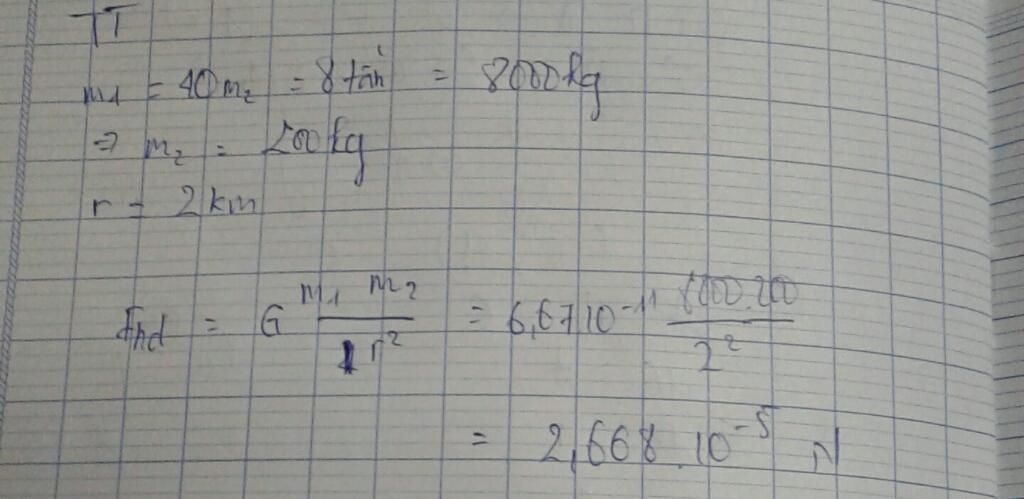 TT
m₁ = 40m₂ = 8 tấn = 8000kg
⇒ m₂ = 200kg
r = 2km
Fhd = G \frac{m₁ m₂}{r²} = 6,67.10⁻¹¹ \frac{8000.200}{2²}
= 2,668.10⁻⁵ N